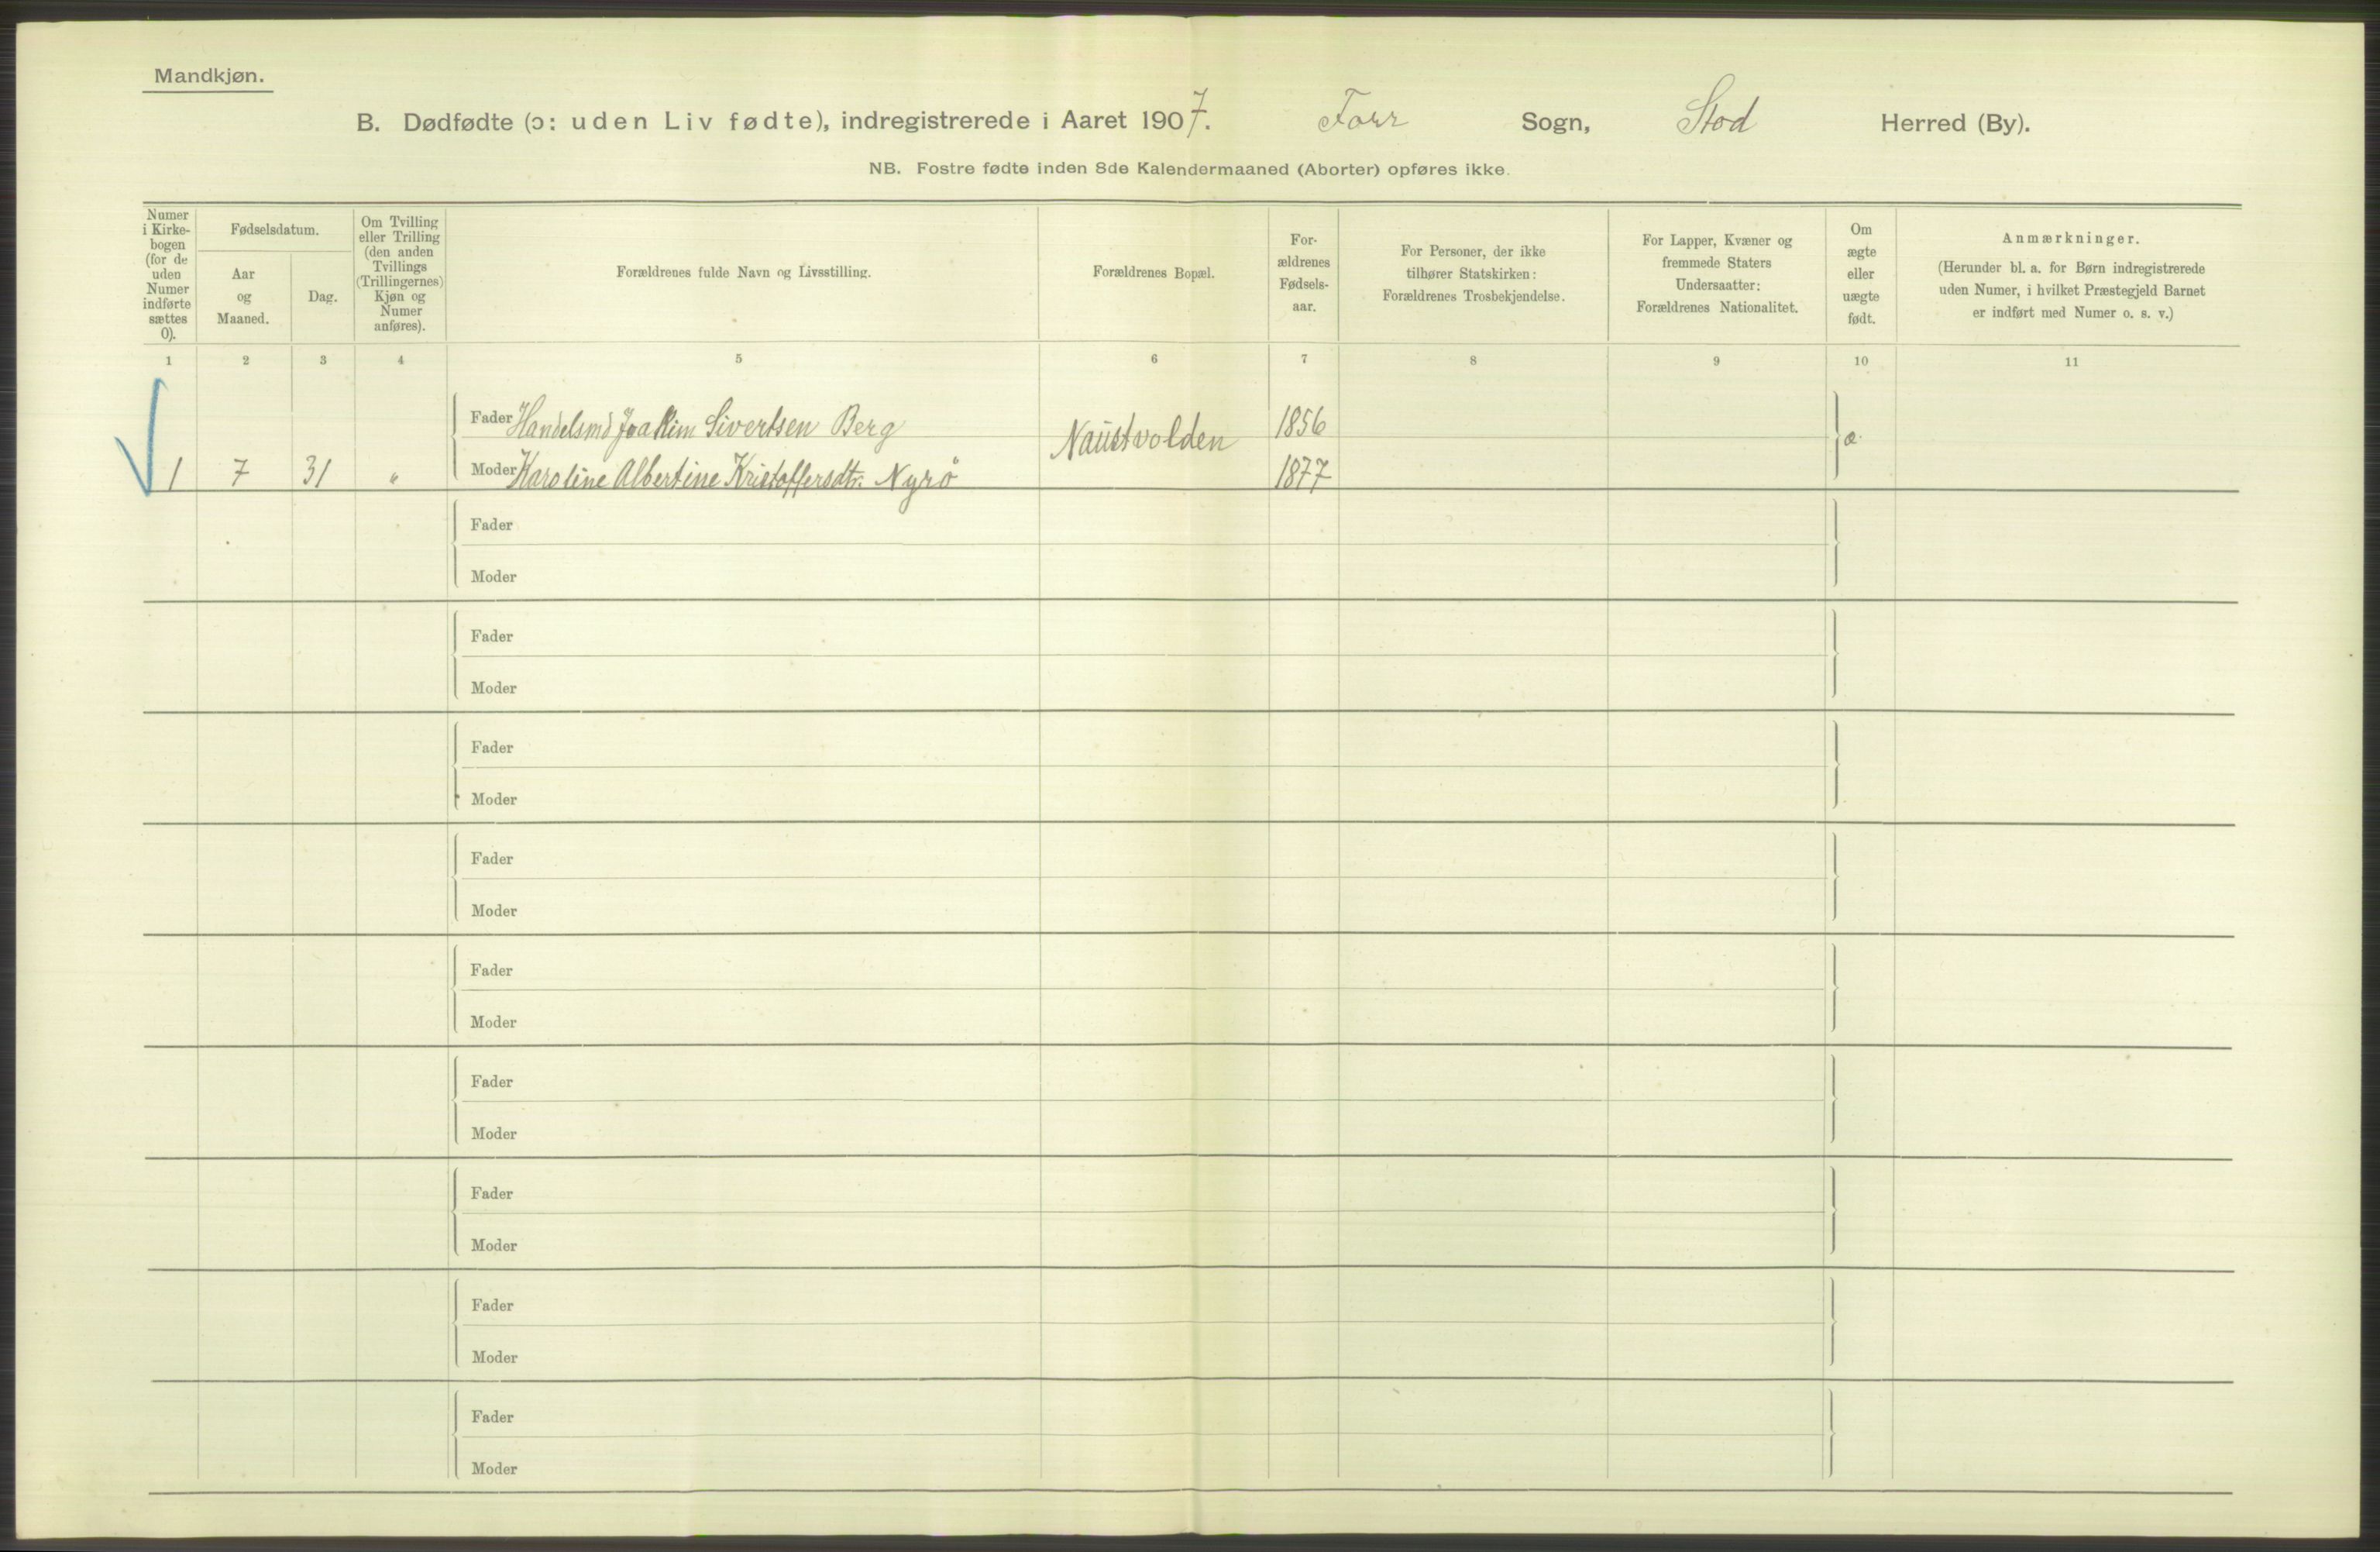 Mandkjøn.
B. Dødfødte (ɔ: uden Liv fødte), indregistrerede i Aaret 1907. Forr Sogn, Stod Herred (By).
NB. Fostre fødte inden 8de Kalendermaaned (Aborter) opføres ikke.
Numer
i Kirke-
bogen
(for de
uden
Numer
indførte
sættes
0).
Fødselsdatum.
Aar
og
Maaned.
Dag.
Om Tvilling
eller Trilling
(den anden
Tvillings
(Trillingernes)
Kjøn og
Numer
anføres).
Forældrenes fulde Navn og Livsstilling.
Forældrenes Bopæl.
For-
ældrenes
Fødsels-
aar.
For Personer, der ikke
tilhører Statskirken:
Forældrenes Trosbekjendelse.
For Lapper, Kvæner og
fremmede Staters
Undersaatter:
Forældrenes Nationalitet.
Om
ægte
eller
uægte
født.
Anmærkninger.
(Herunder bl. a. for Børn indregistrerede
uden Numer, i hvilket Præstegjeld Barnet
er indført med Numer o. s. v.)
1 2 3 4 5 6 7 8 9 10 11
Fader Handelsmd Joakim Sivertsen Berg Naustvolden 1856 æ.
1 7 31 " Moder Karoline Albertine Kristoffersdtr. Nyrö 1877
Fader
Moder
Fader
Moder
Fader
Moder
Fader
Moder
Fader
Moder
Fader
Moder
Fader
Moder
Fader
Moder
Fader
Moder